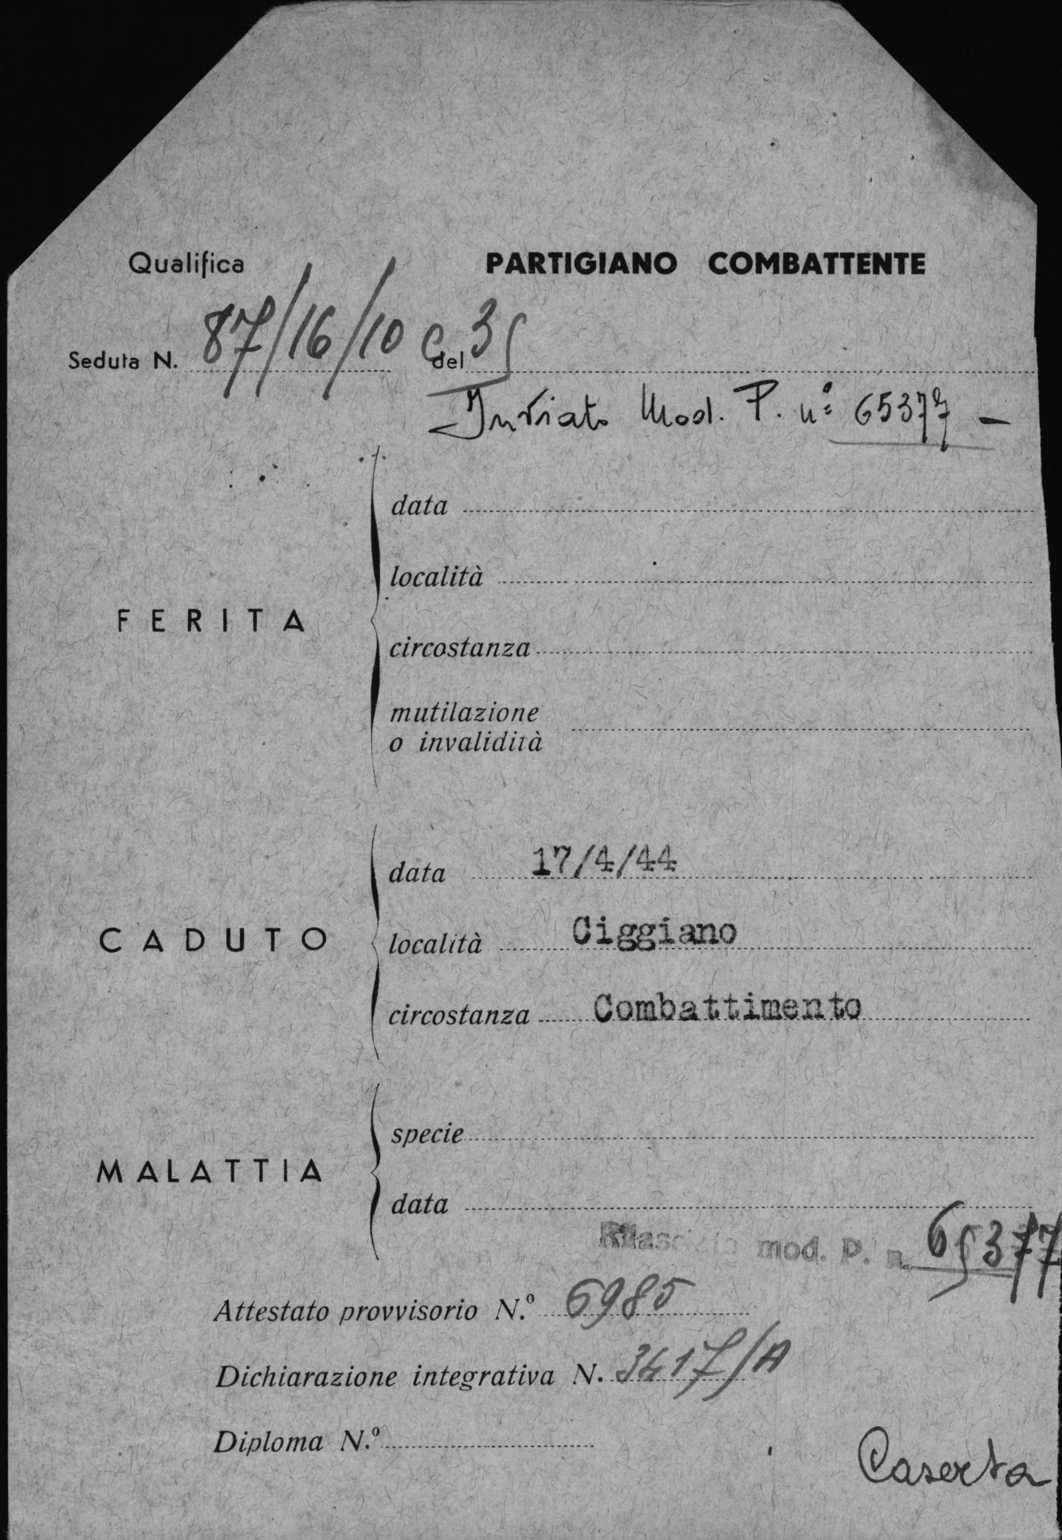 Qualifica PARTIGIANO COMBATTENTE
Seduta N. 87/16/10 C del 35
Inviato Mod. P. n° 65377 -
FERITA
data
località
circostanza
mutilazione
o invalidità
CADUTO
data 17/4/44
località Ciggiano
circostanza Combattimento
MALATTIA
specie
data
Rilasciato mod. P. n. 65377
Attestato provvisorio N.º 6985
Dichiarazione integrativa N. 3417/A
Diploma N.º
Caserta